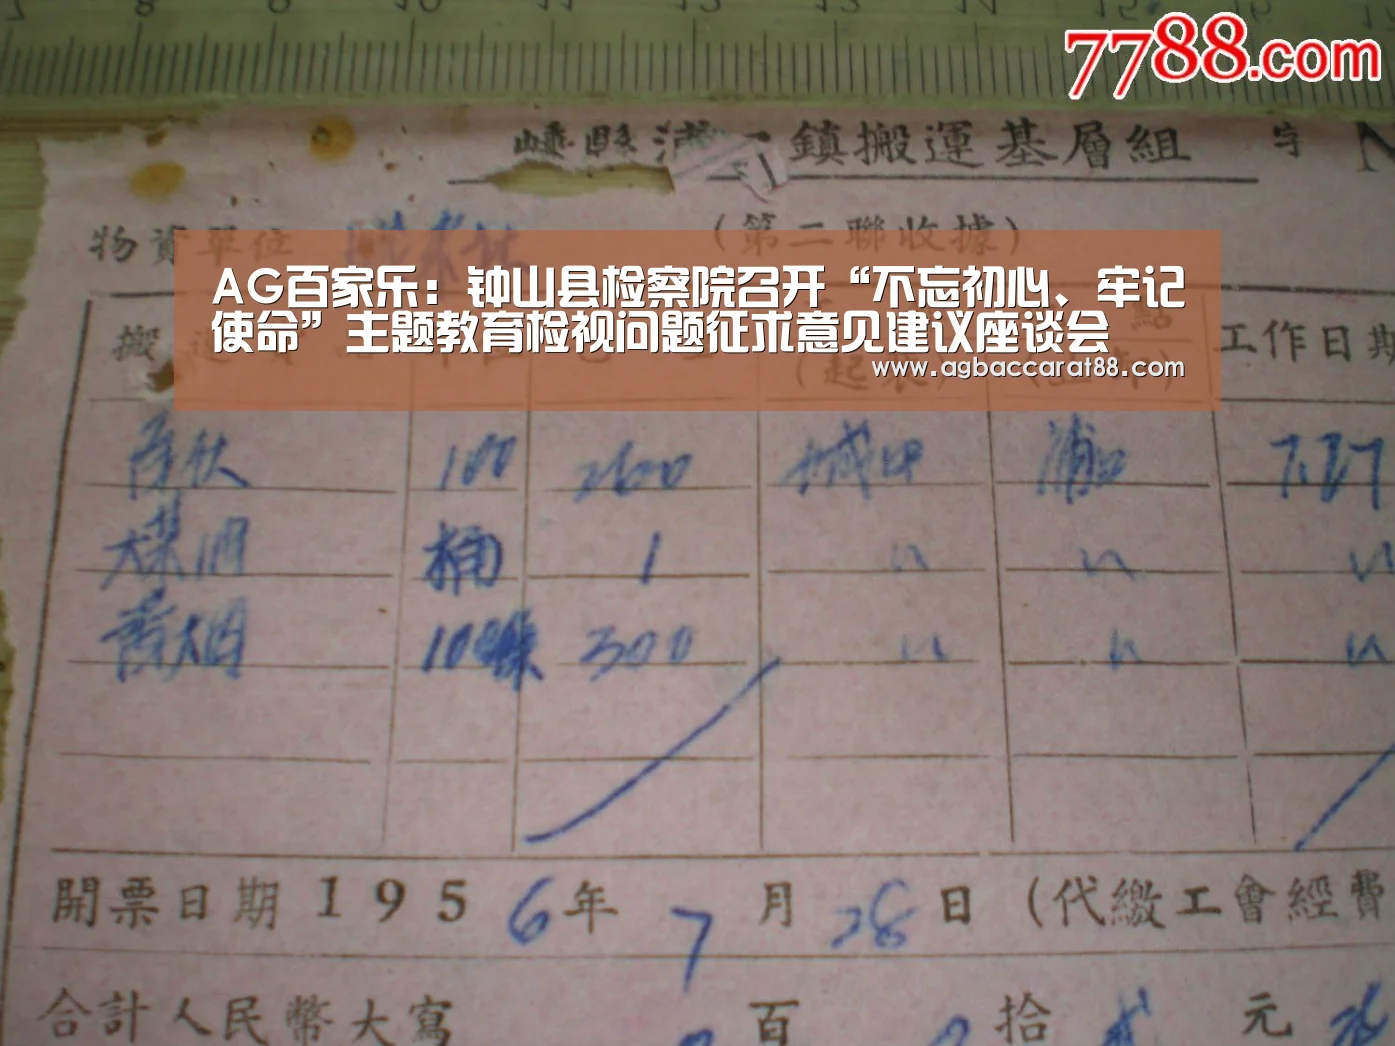 7 8 9 10 11 12 13 14 15 16
7788.com
嵊縣 鎮搬運基層組 字 N
物資單位
(第二聯收據)
AG百家乐：钟山县检察院召开“不忘初心、牢记
使命”主题教育检视问题征求意见建议座谈会
www.agbaccarat88.com
搬 工作日期
100 2600 城中 浦口 7.27
桶 1 〃 〃 〃
香烟 100條 300 〃 〃 〃
開票日期 195 6 年 7 月 28 日 (代繳工會經費
合計人民幣大寫 百 拾 元